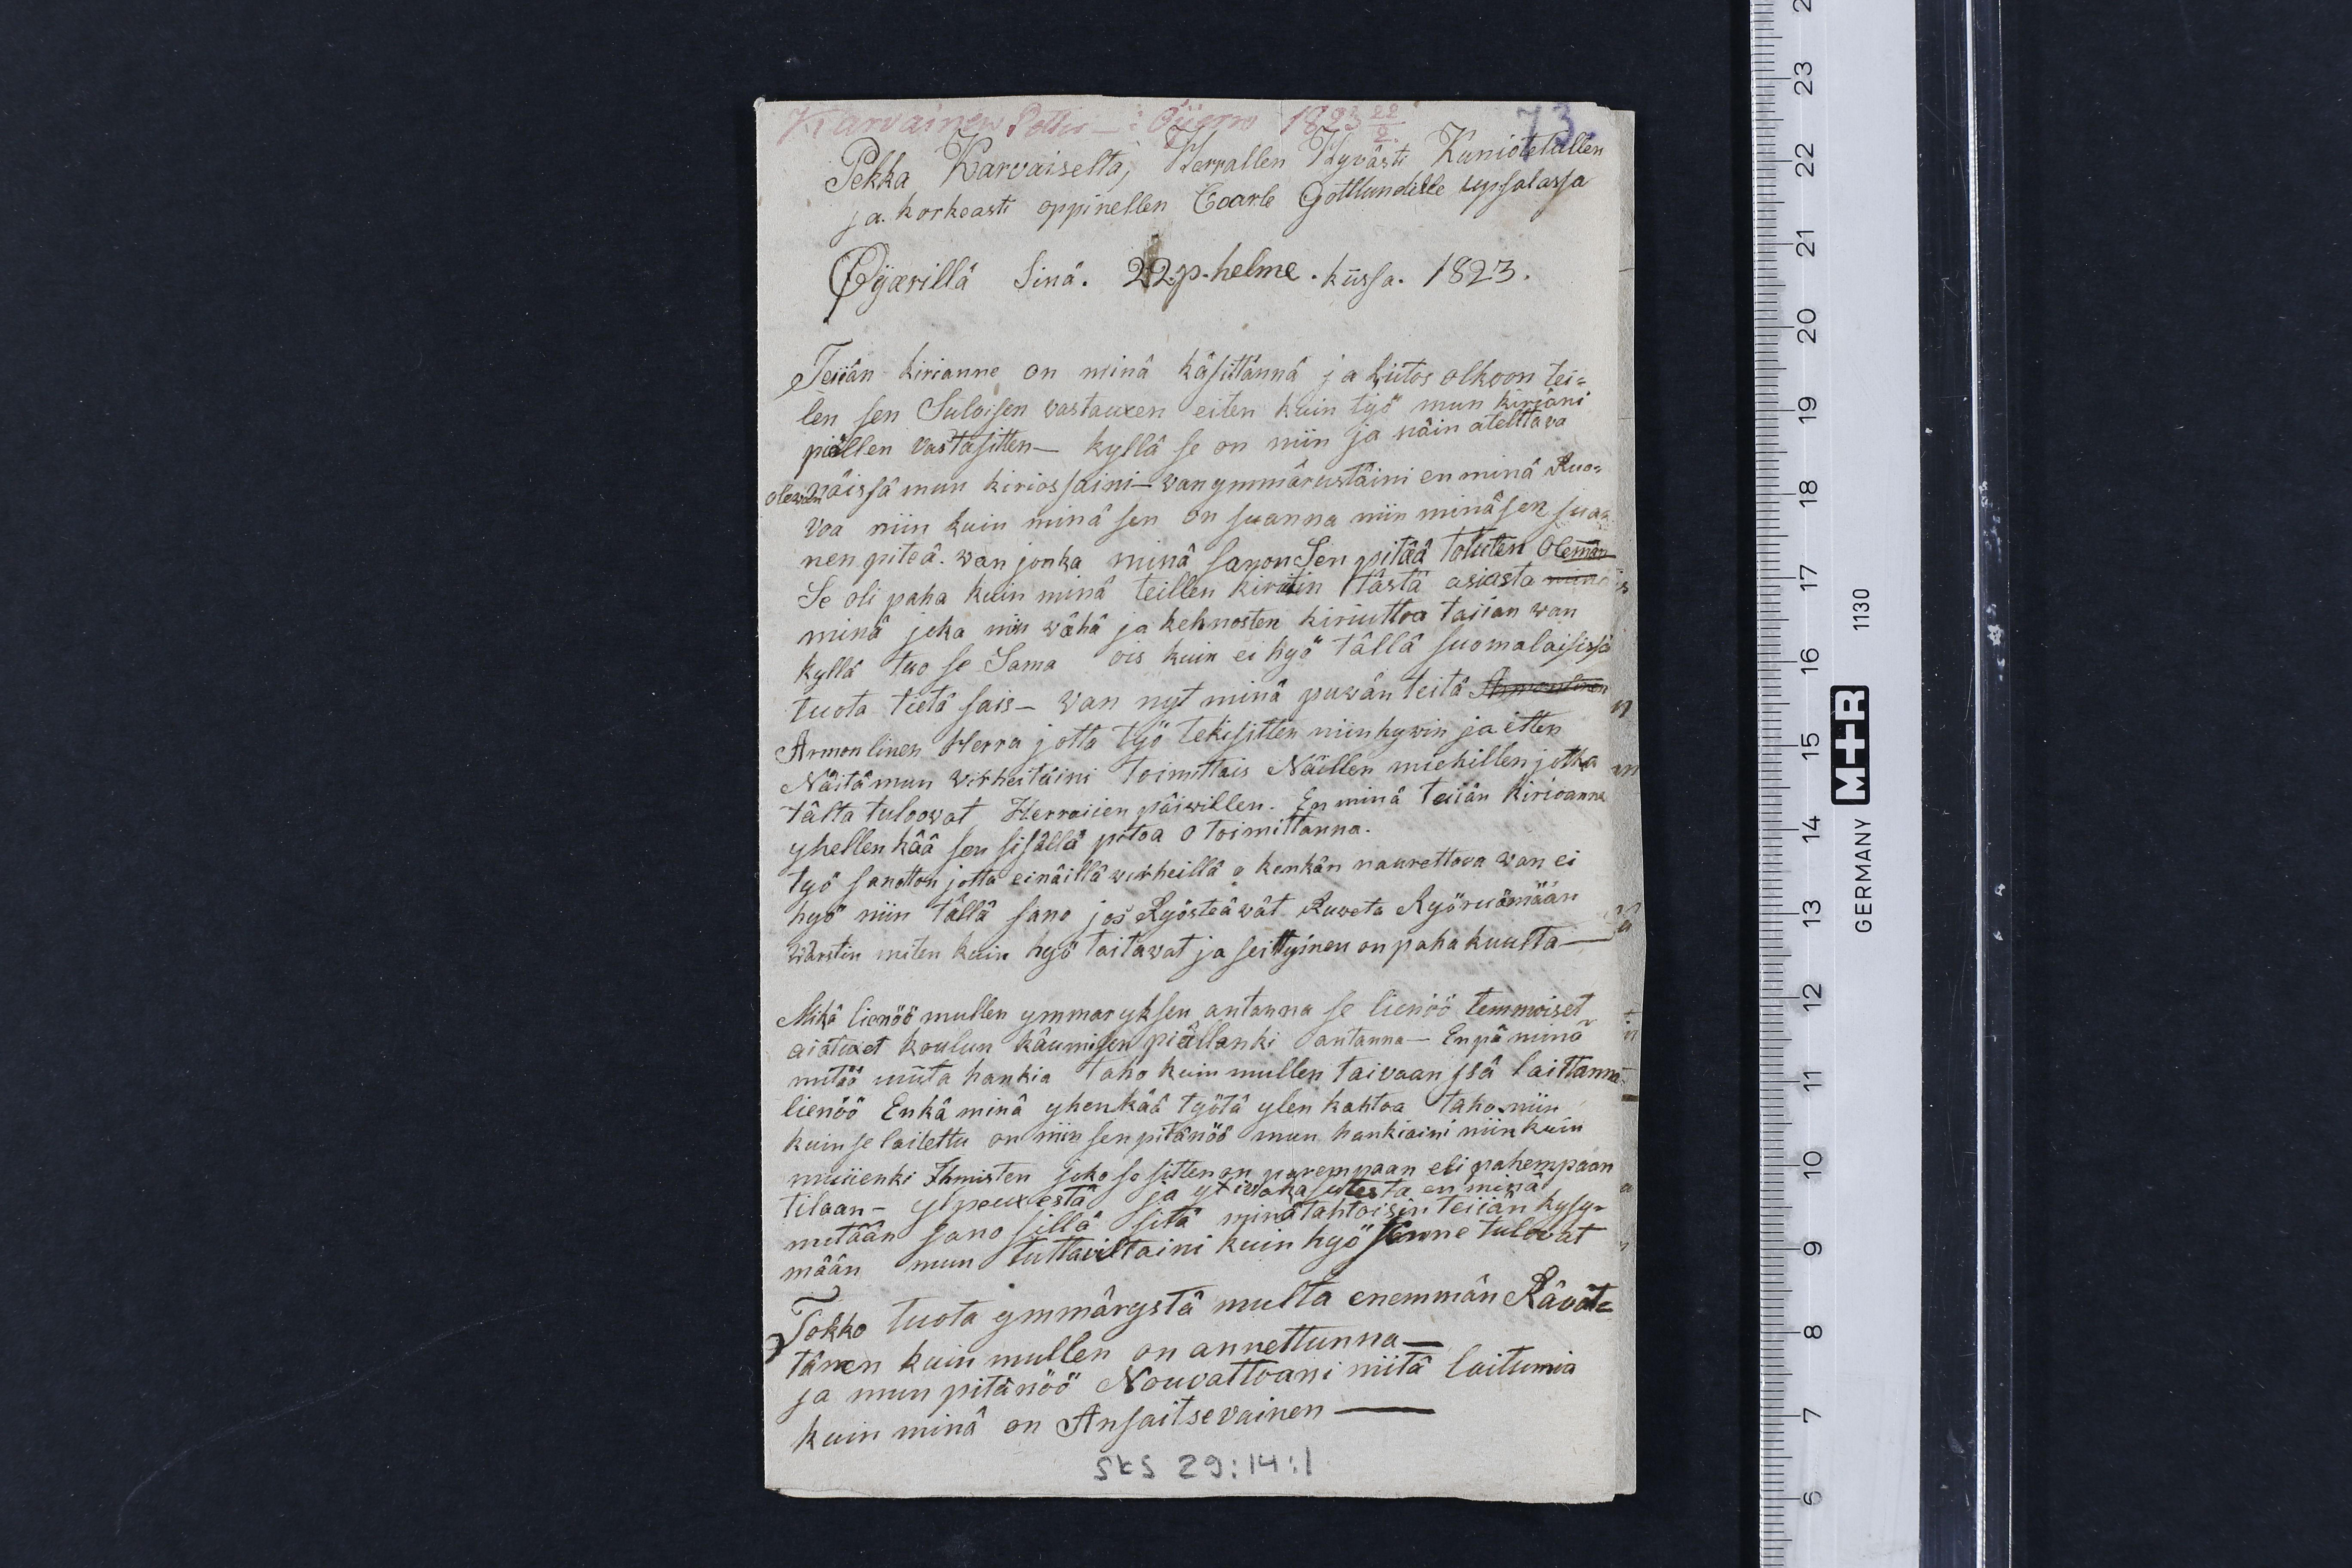 Karvainen Petter – i Öijern 1823 22/2.
73.
Pekka Karvaiselta, Herrallen Hyvästi Kuniotetullen
ja korkeasti oppinellen Coarle Gottlundille upsalassa
Öÿærillä Sinä. 22 p. helme. küssa. 1823.
Teiiän kirianne on minä käsittännä ja kiitos olkoon tei=
len sen Suloisen vastauxen eiten kuin työ mun kiriäni
piällen vastasitten — kyllä se on niin ja näin ateltava
olewan näissä mun kiriossaini — wan ymmärustäini en minä Ruo=
voa niin kuin minä sen on suanna niin minä sen sua=
nen piteä. wan jonka minä sanon Sen pitää totuten Oleman
Se oli paha kuin minä teillen kiritin tästä asiasta minä
minä joka niin wähä ja kehnosten kiriuttoa taiian wan
kyllä tuo se Sama ois kuin ei hyö tällä suomalaisissa
tuota tietä sais — wan nyt minä puwän teitä Armonlinen
Armonlinen Herra jotta työ tekisitten niin hywin ja etten
Näitä mun wirheitäini toimittais Näillen miehillen jotka
tältä tuloowat Herraiien päiwillen. En minä teiiän kirioanne
yhellenkää sen sisällä pitoa o toimittanna.
työ sanotton jotta ei näillä wirheillä o kenkän naurettava wan ei
hyö niin tällä sano jos Ryösteäwät Ruveta Ryöruömään
wärstin miten kuin hyö taitawat ja seittyinen on paha kuulta —
Mikä lienöö mullen ymmaryksen antanna se lienöö temmoiset
aiatuxet koulun käumisen piällänki antanna — Enpä minä
mitää uuta hankia taho kuin mullen taivaan jsä laittanna
lienöö Enkä minä yhenkää työtä ylen kahtoa taho niin
kuin se laitettu on niin sen pitänöö mun hankiaini niin kuin
muiienki Ihmisten joko se sitten on parempaan eli pahempaan
tilaan — ylpeuxestä ja en minä
mitään sano sillä sitä minä tahtoisin teiiän kysy=
mään mun tuttaviltaini kuin hyö sinne tulovat
Tokko tuota ymmärystä multa enemmän Rävät=
tänen kuin mullen on annettunna —
ja mun pitänöö Nouvattoani niitä laitumia
kuin minä on Ansaitsevainen —
SKS 29:14:1
23
22
21
20
19
18
17
16
15
14
13
12
11
10
9
8
7
6
GERMANY M+R 1130